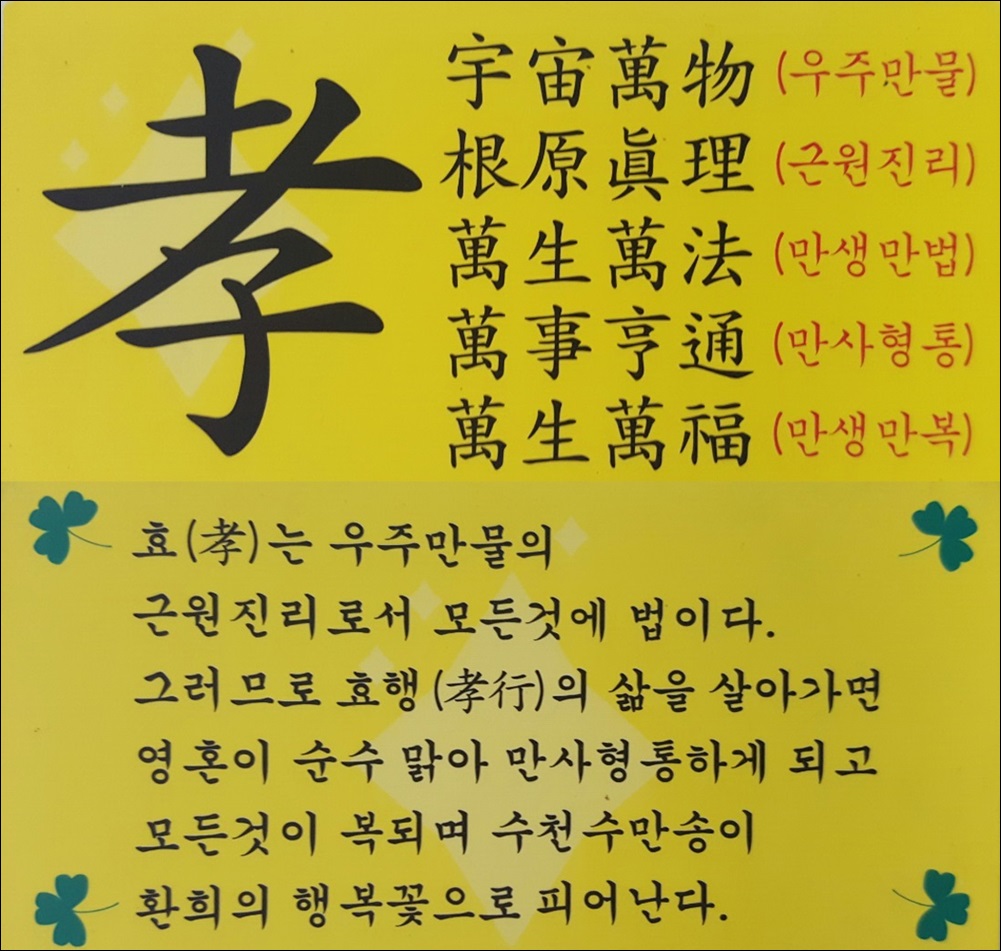 孝
宇宙萬物 (우주만물)
根原眞理 (근원진리)
萬生萬法 (만생만법)
萬事亨通 (만사형통)
萬生萬福 (만생만복)
효(孝)는 우주만물의
근원진리로서 모든것에 법이다.
그러므로 효행(孝行)의 삶을 살아가면
영혼이 순수 맑아 만사형통하게 되고
모든것이 복되며 수천수만송이
환희의 행복꽃으로 피어난다.